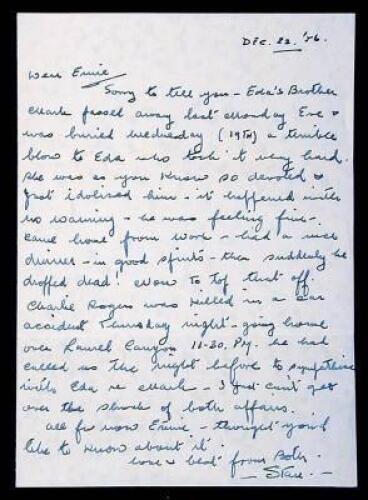 DEC. 22. '56.
Dear Ernie
Sorry to tell you - Eda's Brother
Mark passed away last Monday Eve &
was buried Wednesday (19TH) a terrible
blow to Eda who took it very hard.
She was as you know so devoted &
just idolised him - it happened with
no warning - he was feeling fine -
came home from work - had a nice
dinner - in good spirits - then suddenly he
dropped dead! Now to top that off.
Charlie Rogers was killed in a car
accident Thursday night - going home
over Laurel Canyon 11-30. PM. he had
called us the night before to sympathise
with Eda re Mark - I just can't get
over the shock of both affairs.
all for now Ernie - thought you'd
like to know about it.
Love & best from Both.
- Stan. -